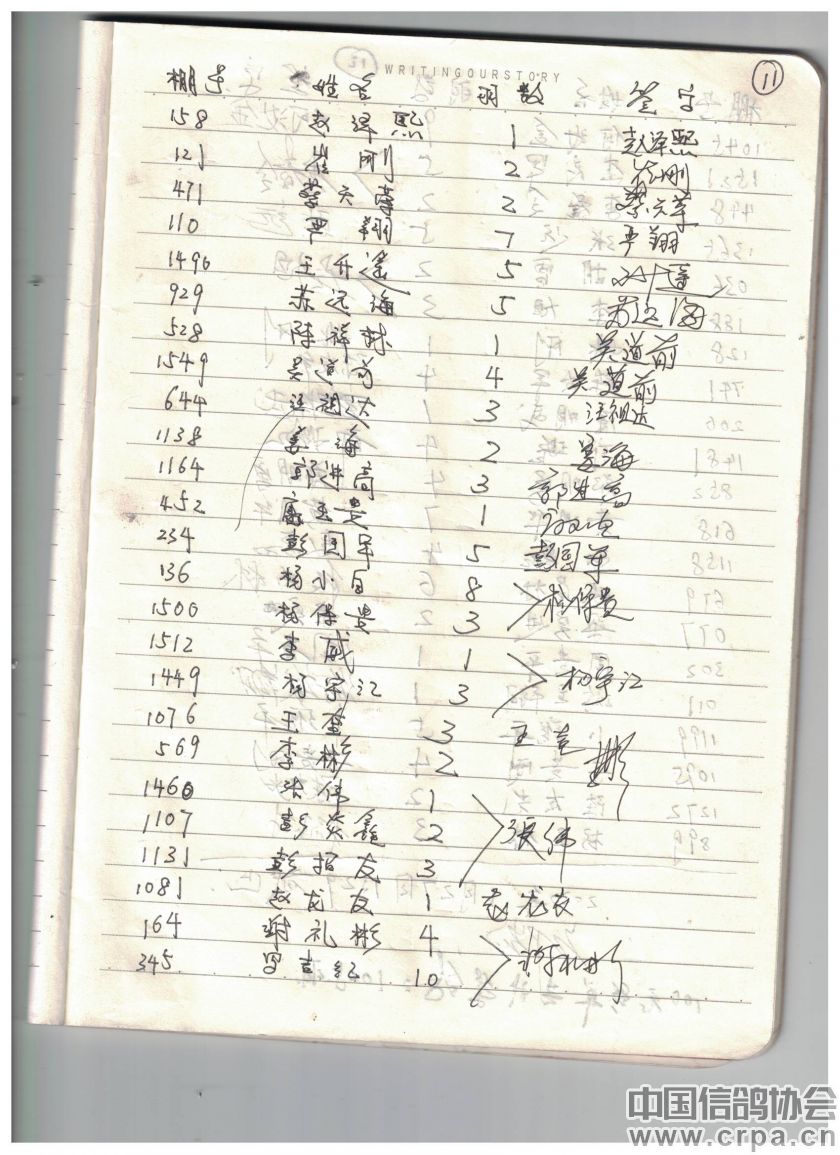 WRITINGOURSTORY
11
棚号 姓名 羽数 签字
158 赵泽熙 1 赵泽熙
121 崔刚 2 崔刚
471 蔡元華 2 蔡元華
110 严翔 7 严翔
1496 王升遥 5
929 苏远海 5 苏远海
528 陈祥球 1 吴道前
1549 吴道前 4 吴道前
644 汪祖达 3 汪祖达
1138 姜海 2 姜海
1164 郭进高 3 郭进高
452 1
234 彭国军 5 彭国军
136 杨小白 8 杨保贵
1500 杨保贵 3
1512 李威 1 杨宇江
1449 杨宇江 3
1076 王奎 3 王奎
569 李彬 2 彬
1460 张伟 1 张伟
1107 彭炎鑫 2
1131 彭招友 3
1081 赵龙友 1 赵龙友
164 谢礼彬 4 谢礼彬
345 吉红 10
中国信鸽协会
www.crpa.cn